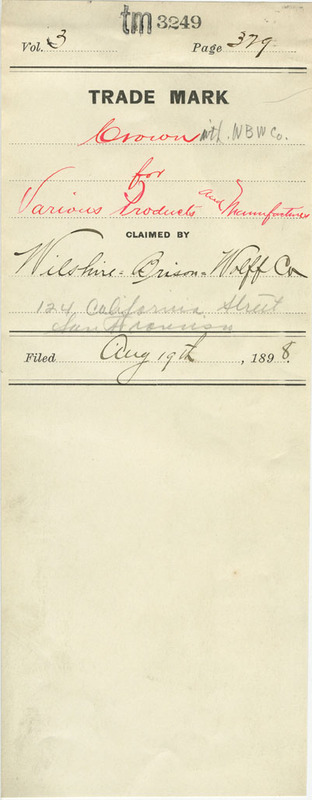 tm 3249
Vol. 3 Page 379
TRADE MARK
Crown with. W B W Co.
for
Various Products and Manufactures
CLAIMED BY
Wilshire-Brison-Wolff Co
124 California Street
San Francisco
Filed Aug 19th, 1898.